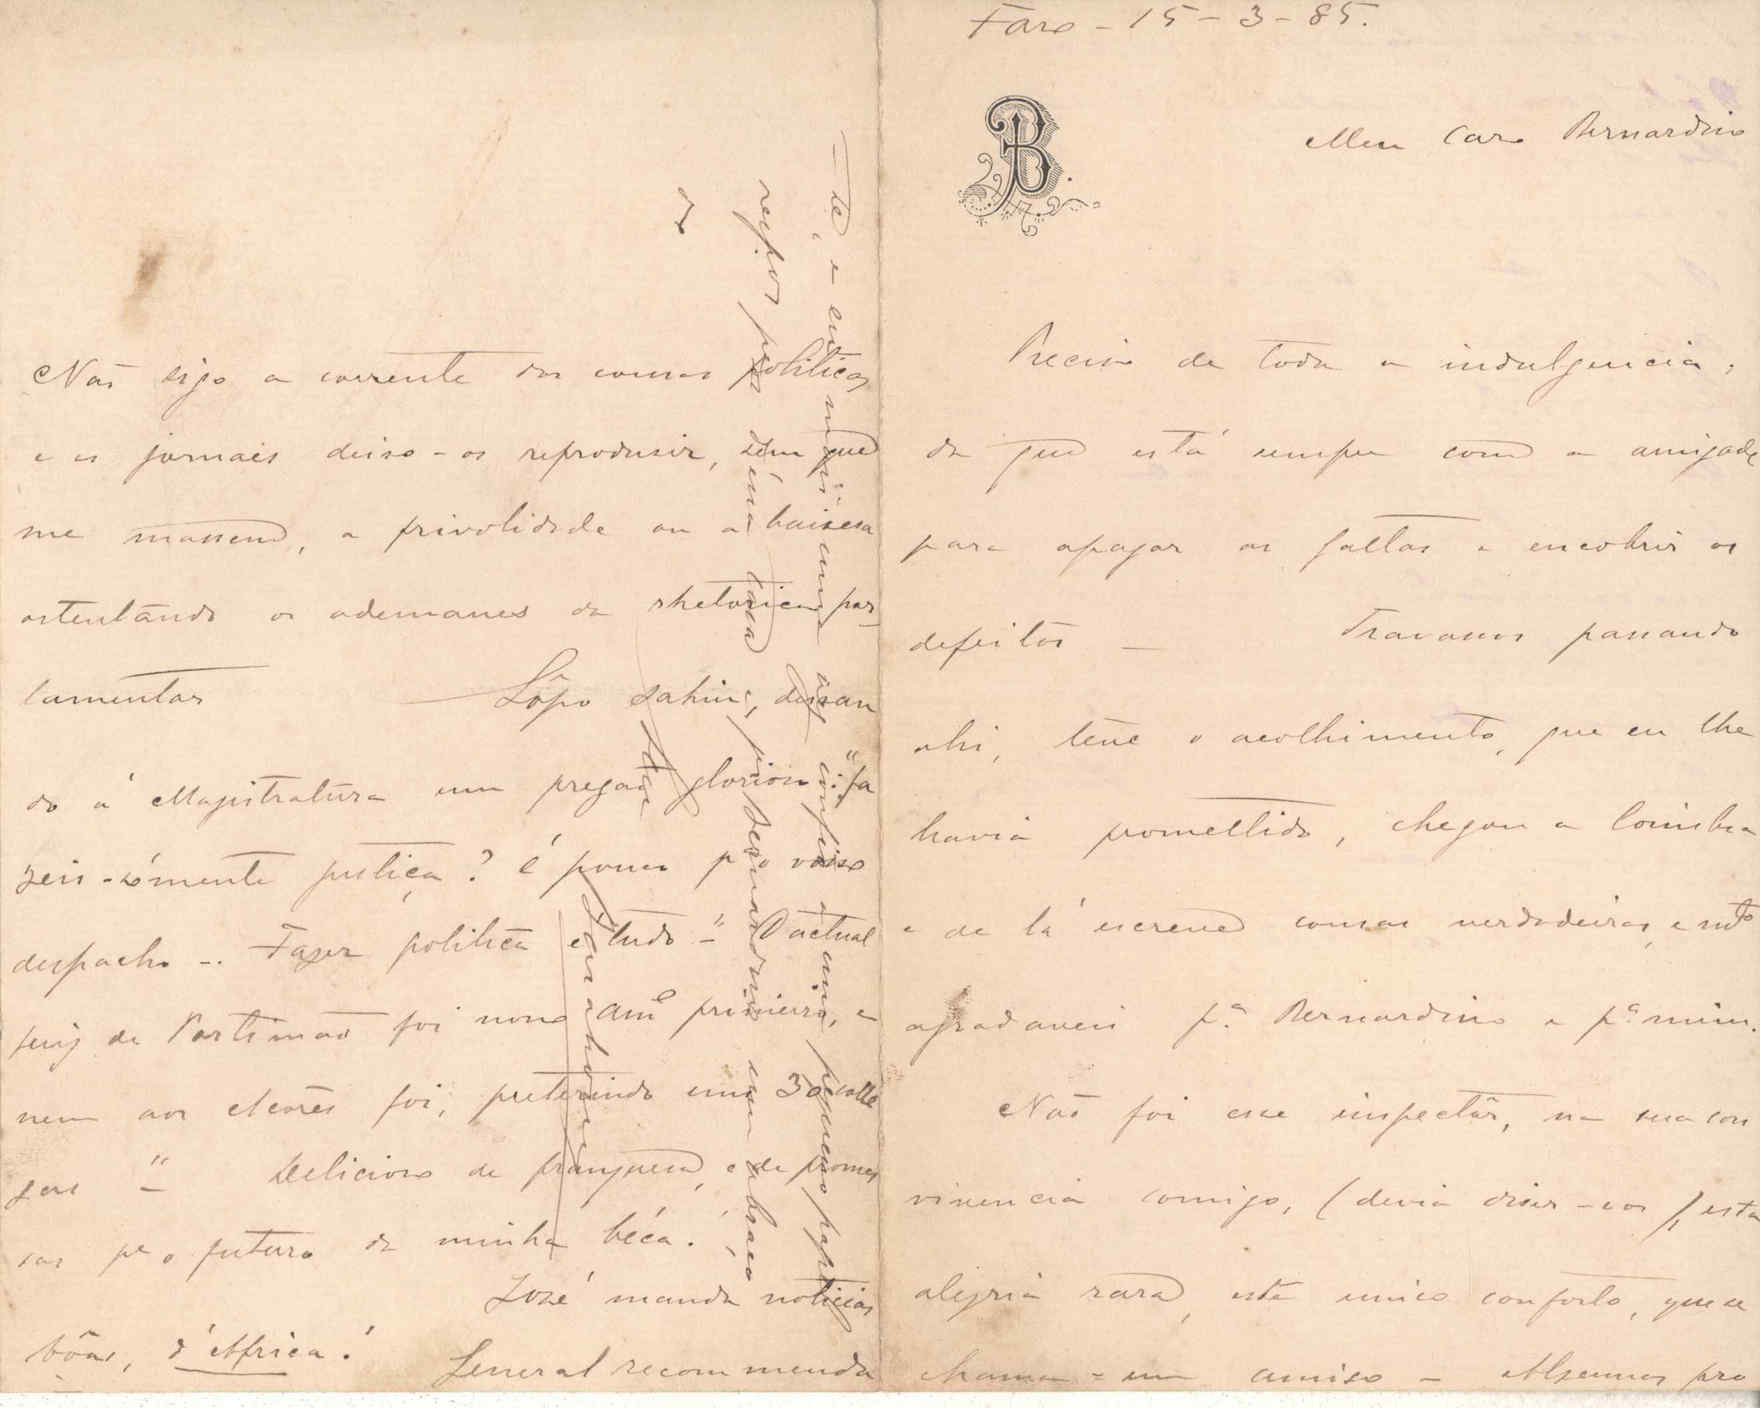 Faro - 15 - 3 - 85.
B.
Meu caro Bernardino
Preciso de toda a indulgencia,
da que está sempre com a amizade
para apagar as faltas e encobrir os
defeitos — Travassos passando
ahi, teve o acolhimento, que eu lhe
havia promettido, chegou a Coimbra
e de lá escreveu cousas verdadeiras, e mto
agradaveis pª Bernardino e pª mim.
Não foi esse inspectôr, na sua con
vivencia comigo, (devia diser-vos), esta
alegria rara, este unico conforto, que se
chama - um amigo - Algumas pro
Não sigo a corrente das cousas politicas
e os jornaes deixo-os reprodusir, sem que
me massem, a frivolidade ou a baixesa
ostentando os ademanes da rhetorica par
lamentar Lôpo sahiu, deixan
do á Magistratura um pregão glorioso: "fa
zeis-sómente justiça? é pouco pª o vosso
despacho -. Fazer politica é tudo -" O actual
juiz de Portimão foi
nem aos Açores foi, preterindo uns 30 colle
gas " - Delicioso de franquesa, e de promes
sas pª o futuro da minha béca!
José manda noticias
bôas, d'Africa!
General recommenda
- te, e eu mais uma vez confio a um pequeno papel
Bernardino um abraço